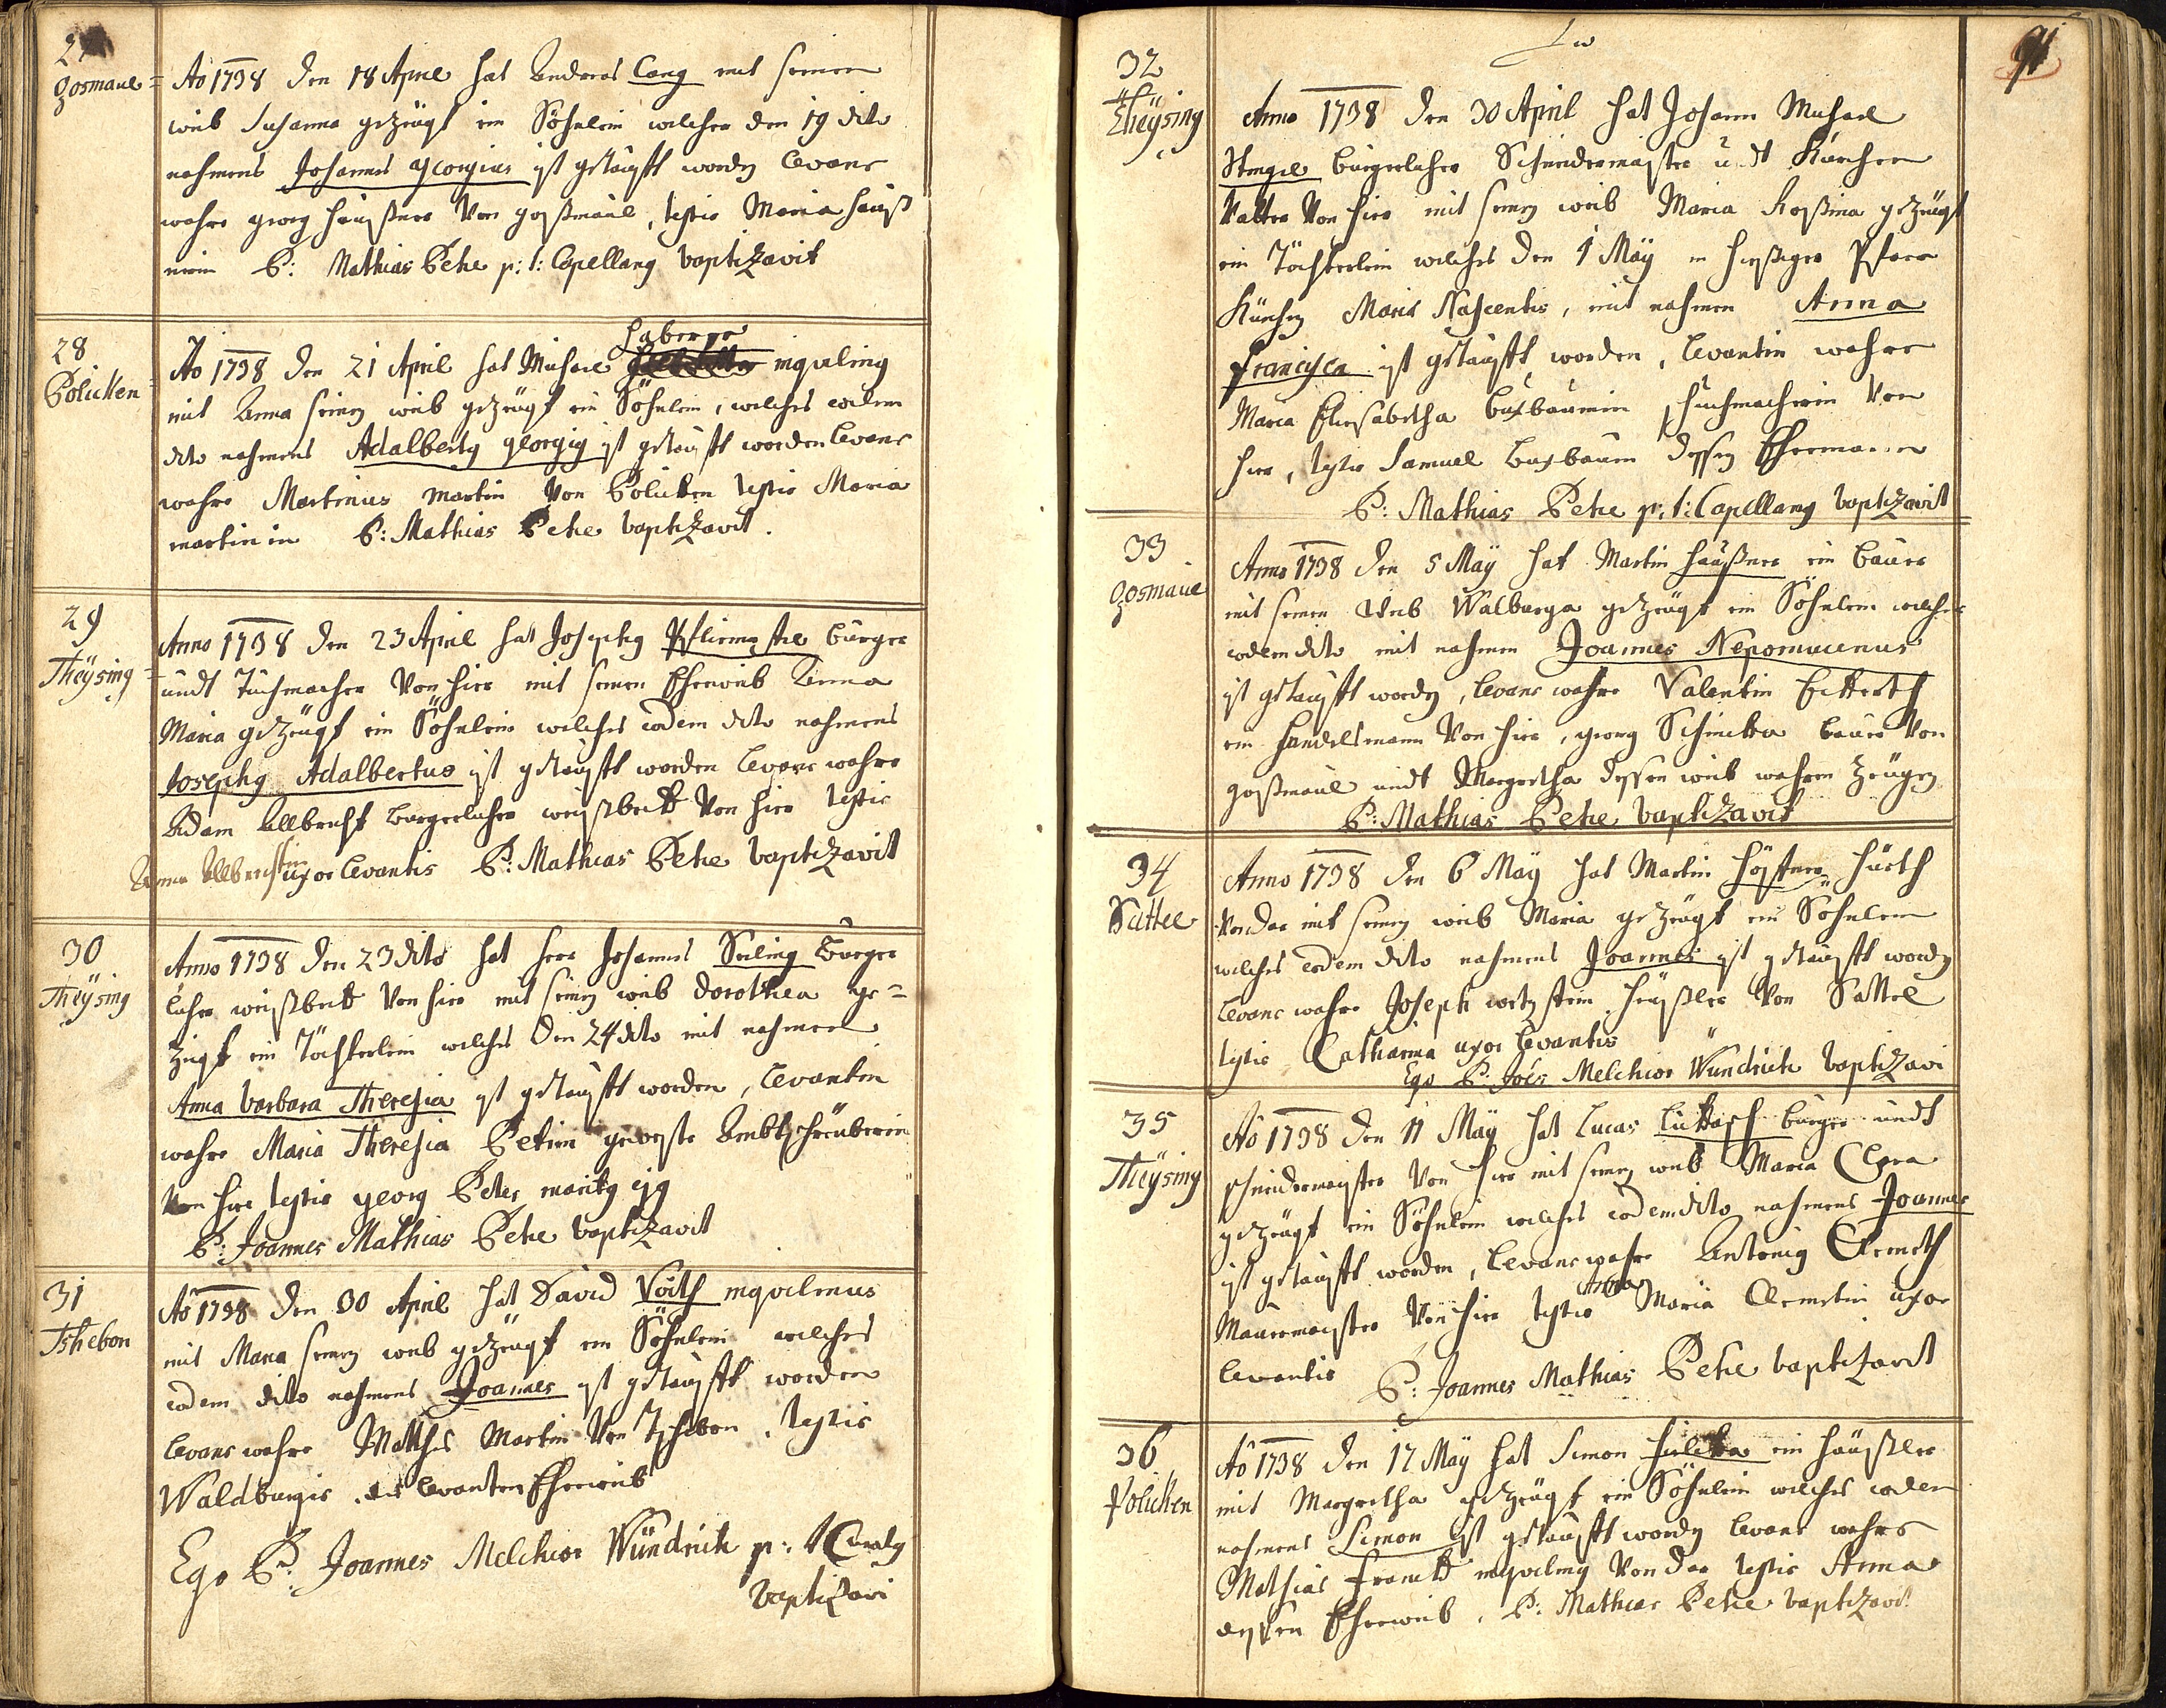 27
Gosmaul=
Ao 1738 den 18 April hat Anderas Lang mit seinen
weib Susanna gezeügt ein Söhnlein welcher den 19 dito
nahmens Johannes Georgius ist getaufft worden Levans
wahre Georg Häußner von Goßmaul, testis Maria Häuß
nerin P: Mathias Peke p: t: Capellanus baptizavit
28
Policken
Ao 1738 den 21 April hat Michael Haberger inquilinus
mit Anna seinen weib gezeügt ein Söhnlein, welches eodem
dito nahmens Adalbertus Georgius ist getaufft worden Levans
wahre Martinus Martin von Policken testis Maria
Martinin P: Mathias Peke baptizavit.
29
Theÿsing
Anno 1738 den 23 April hat Josephus Bürger
undt Tuchmacher von hier mit seinen Eheweib Anna
Maria gezeügt ein Söhnlein welches eodem dito nahmens
Josephus Adalbertus ist getaufft worden Levans wahre
Adam Allbrecht Burgerlicher weißbeck von hier testis
Anna Allbrechtin uxor levantis P: Mathias Peke baptizavit
30
Theÿsing
Anno 1738 den 23 dito hat Herr Johannes Seling Bürger
licher weißbeck von hier mit seinen weib Dorothea ge=
zeügt ein Töchterlein welches den 24 dito mit nahmen
Anna Barbara Theresia ist getaufft worden, Levantin
wahre Maria Theresia Petrin geweste Ambtschreüberin
von hier testis Georg Peter maritus ejus
P: Joannes Mathias Peke baptizavit
31
Tschebon
Ao 1738 den 30 April hat David Voith inquilinus
mit Maria seinen weib gezeügt ein Söhnlein welches
eodem dito nahmens Joannes ist getaufft worden
Levans wahre Mathes Martin von Tschebon, testis
Waldburgis des levanten Eheweib
Ego P: Joannes Melchior Wündrich p: t: Curatus
baptizavi
91
32
Theÿsing
Anno 1738 den 30 April hat Johann Michael
Stengel bürgerlicher Schneidermaister undt Kürchen
Vatter von hier mit seinen weib Maria Rossina gezeügt
ein Töchterlein welches den 1 Maÿ in hießiger Pfarr
Kürchen Maria Nascentis, mit nahmen Anna
Francisca ist getaufft worden, Levantin wahre
Maria Eliesabetha Buxbaumin, Tuchmacherin von
hier, testis Samuel Buxbaum dessen Ehemann
P: Mathias Peke p: t: Capellanus baptizavit
33
Gosmaul
Anno 1738 den 5 Maÿ hat Martin Häußner ein Bauer
mit seinen Weib Walburga gezeügt ein Söhnlein welches
eodem dito mit nahmen Joannes Nepomucenus
ist getaufft worden, Levans wahre Valentin Eckerth
ein Handelsmann von hier, Georg Schinecker Bauer von
Goßmaul undt Margretha dessen weib wahren Zeügen
P: Mathias Peke baptizavit
34
Sattel
Anno 1738 den 6 Maÿ hat Martin Hörtner Hürth
von dar mit seinen weib Maria gezeügt ein Söhnlein
welches eodem dito nahmens Joannes ist getaufft worden
Levans wahre Joseph wetzstein Heüßler von Sattel
testis Catharina uxor levantis
Ego P: Joes Melchior Wündrich baptizavi
35
Theÿsing
Ao 1738 den 11 Maÿ hat Lucas Luttasch bürger undt
schneidermeister von hier mit seinen weib Maria Clara
gezeügt ein Söhnlein welches eodem dito nahmens Joannes
ist getaufft worden, Levans wahre Antonius Clemeth
Maurmeister von hier testis Anna Maria Clemetin uxor
levantis P: Joannes Mathias Peke baptizavit
36
Policken
Ao 1738 den 17 Maÿ hat Simon ein Häußler
mit Margretha gezeügt ein Söhnlein welches eodem
nahmens Simon ist getaufft worden Levans wahre
Mathias Franck inquilinus von dar testis Anna
dessen Eheweib, P: Mathias Peke baptizavit